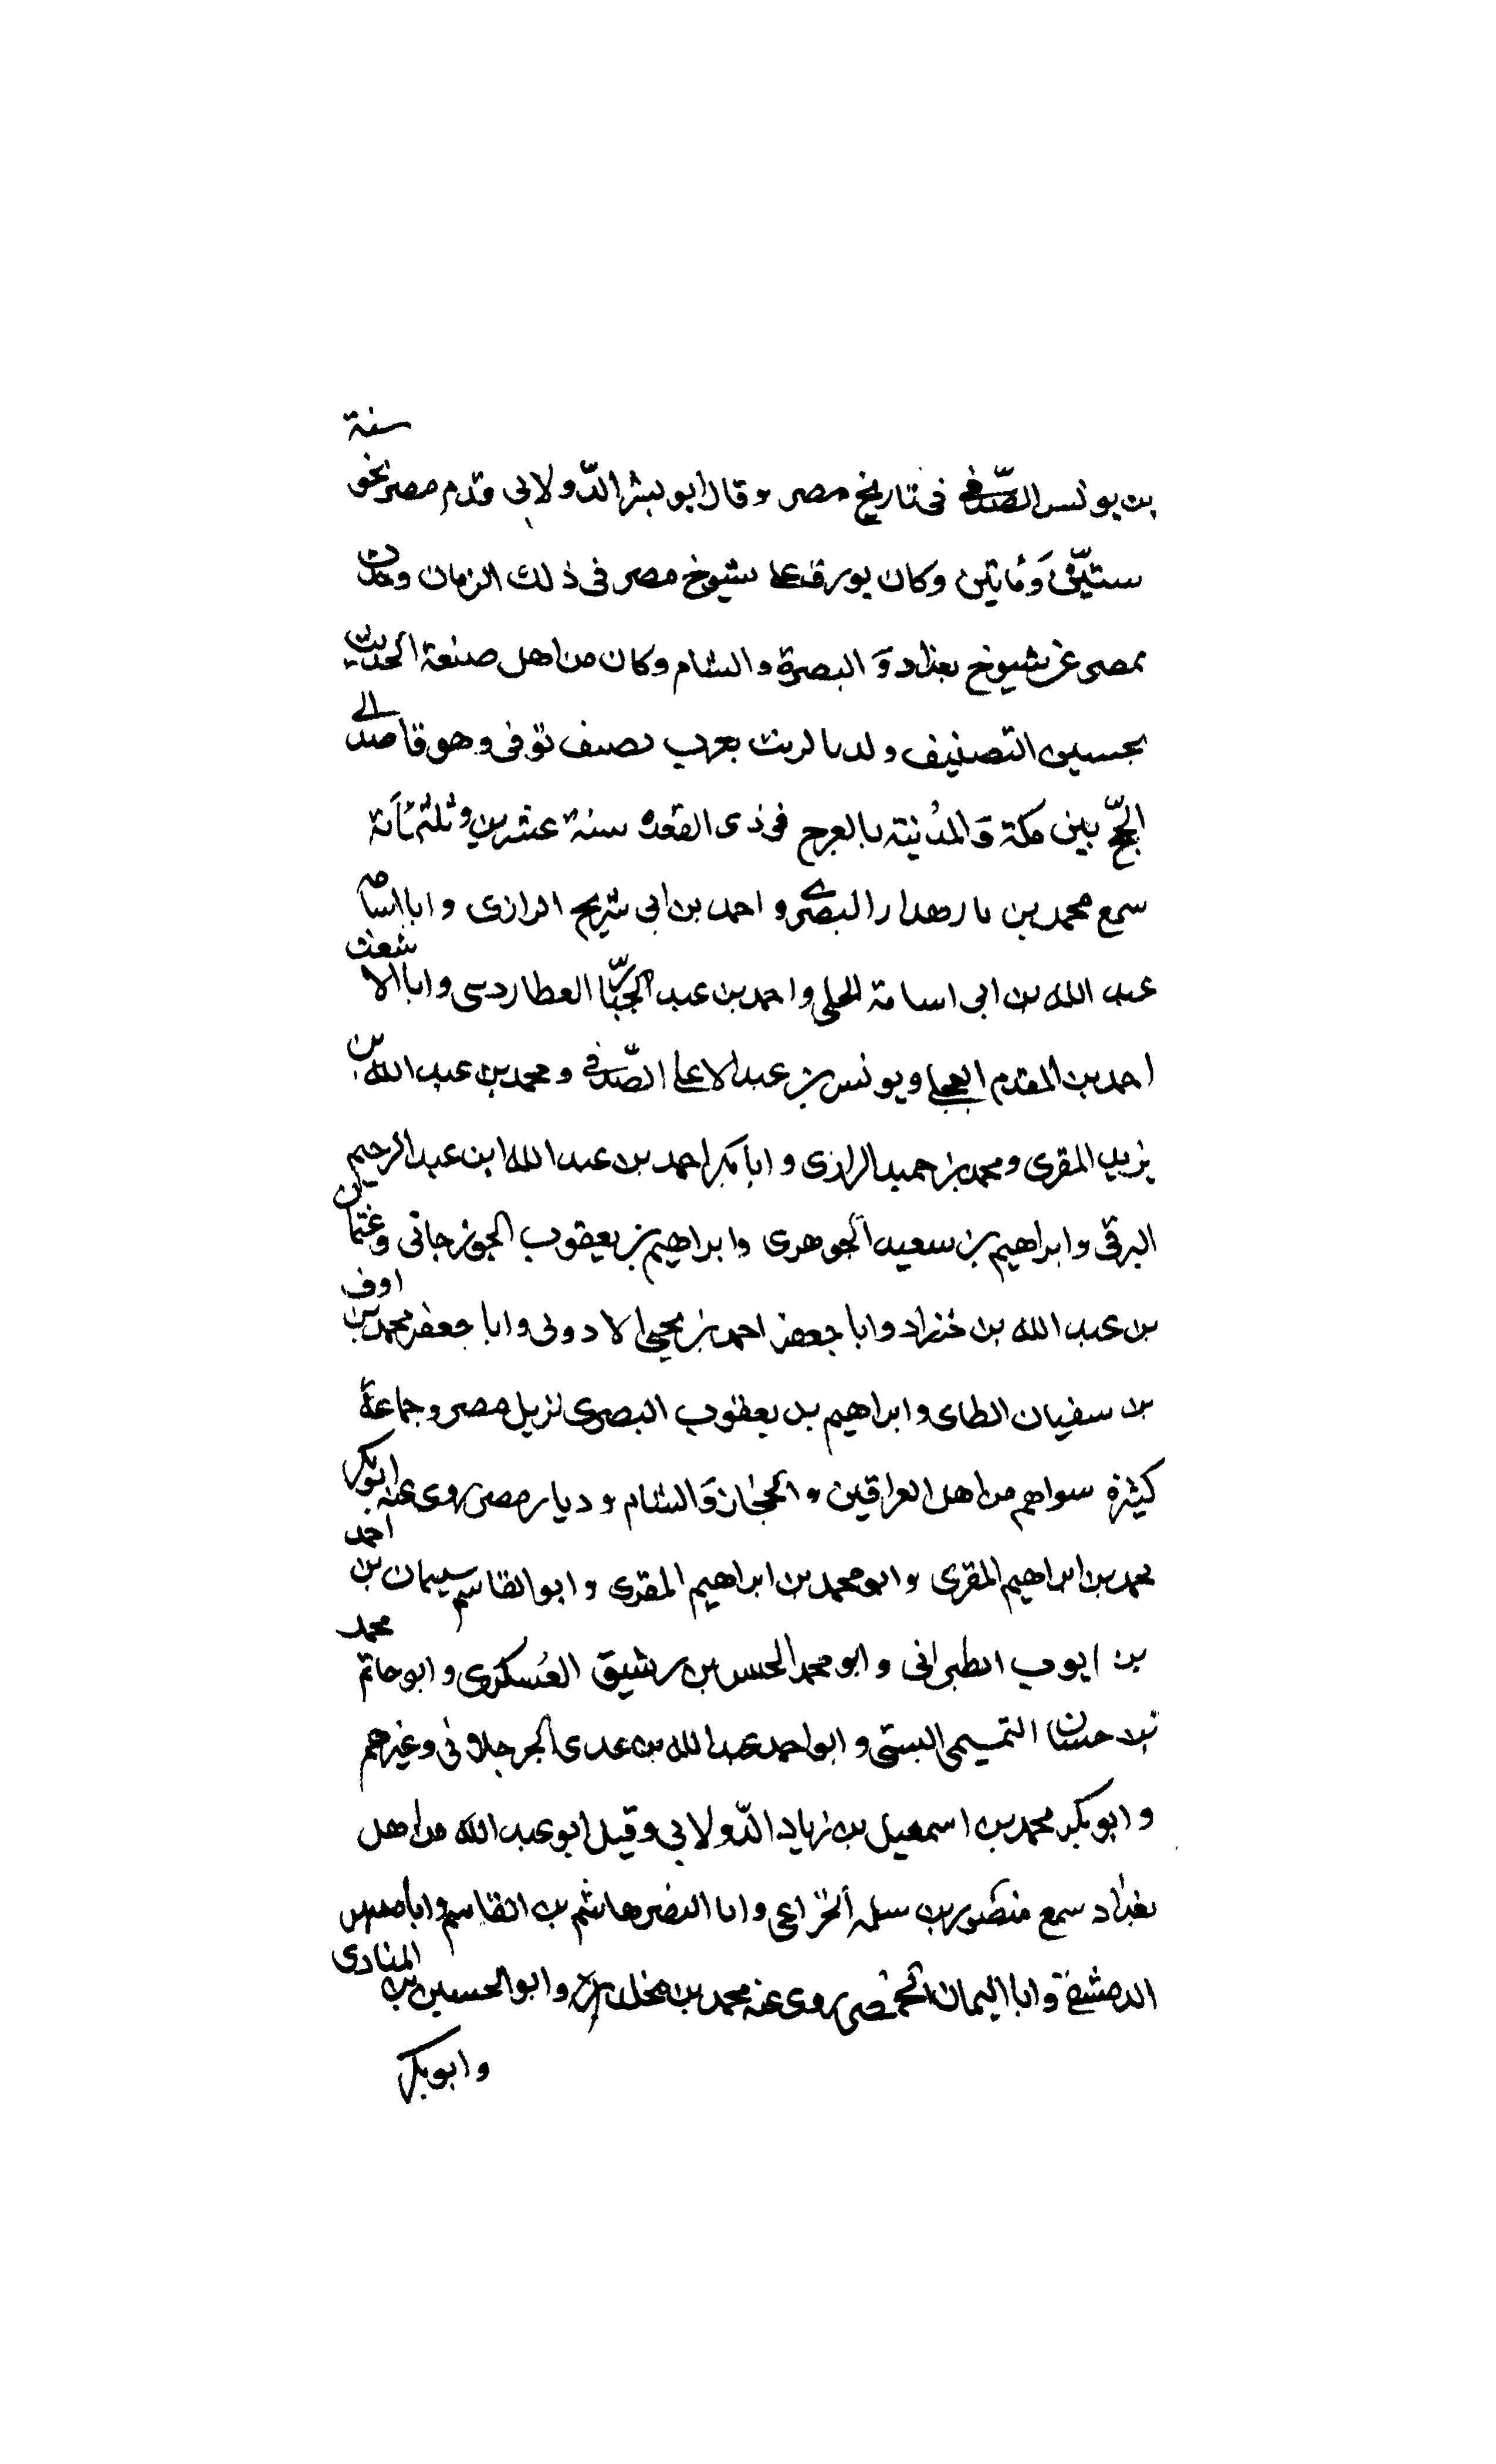 بن يونس الصّدفي في تاريخ مصر وقال ابو بشر الدّولابي قدم مصر نحو سنة
ستيّن وَمُاتين وكان يورق على شيوخ مصر في ذلك الزمان وحدث
بمصر عن شيوخ بغداد وَالبصرة والشام وكان من اهل صنعة الحديث
بحسن التصنيف وله بالحديث معرفة يصنف توفى وهو قاصد الى
الحجّ بين مكة وَالمدُينة بالعرج في ذى القعده سنة عشرين وثلثمَائة
سمع محمد بن بشار البصرى واحمد بن ابى شريح الرازى وابا اسامه
عبد الله بن ابى اسامة الحلبي واحمد بن عبد الجبّار العطاردى وابا الاشعث
احمد بن المقدم العجلى ويونس بن عبد الاعلى الصّدفي ومحمد بن عبد الله بن
يزيد المقرى ومحمد بن حميد الرازى وابا بكر احمد بن عبد الله ابن عبد الرحيم
البرقى وابراهيم بن سعيد الجوهرى وابراهيم بن يعقوب الجوزجانى وعثمان
بن عبد الله بن خرزاد وابا جعفر احمد بن يحيى الاودى وابا جعفر محمد بن عوف
بن سفيان الطاى وابراهيم بن يعقوب البصرى نزيل مصر وجماعة
كثيرة سواهم من اهل العراقين والحجاز وَالشام وديار مصر روى عنه ابو بكر
محمد بن ابراهيم المقرى وابو محمد بن ابراهيم المقرى وابو القاسم سليمان بن احمد
بن ايوب الطبرانى وابو محمد الحسن بن رشيق العُسكرى وابو حاتم محمد
بن حبان التميمى البستى وابو احمد عبد الله بن عدى الجرجانى وغيرهم
وابو بكر محمد بن اسمعيل بن زياد الدّولابي وقيل ابو عبد الله من اهل
بغداد سمع منصور بن سلمه الخزاعى وابا النضر هاشم بن القاسم وابا مسهر
الدمشقى وابا اليمان الحمصى روى عنه محمد بن مخلد وابو الحسين بن المنادى
وابو بكر